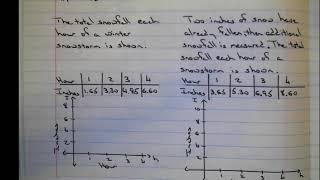 The total snowfall each
hour of a winter
snowstorm is shown.
Hour | 1 | 2 | 3 | 4
Inches | 1.65 | 3.30 | 4.95 | 6.60
8
6
4
2
Inches
1 2 3 4 h
Hour
Two inches of snow have
already fallen, then additional
snowfall is measured. The total
snowfall each hour of a
snowstorm is shown.
Hour | 1 | 2 | 3 | 4
Inches | 3.65 | 5.30 | 6.95 | 8.60
10
8
6
4
2
1 2 3 4 h